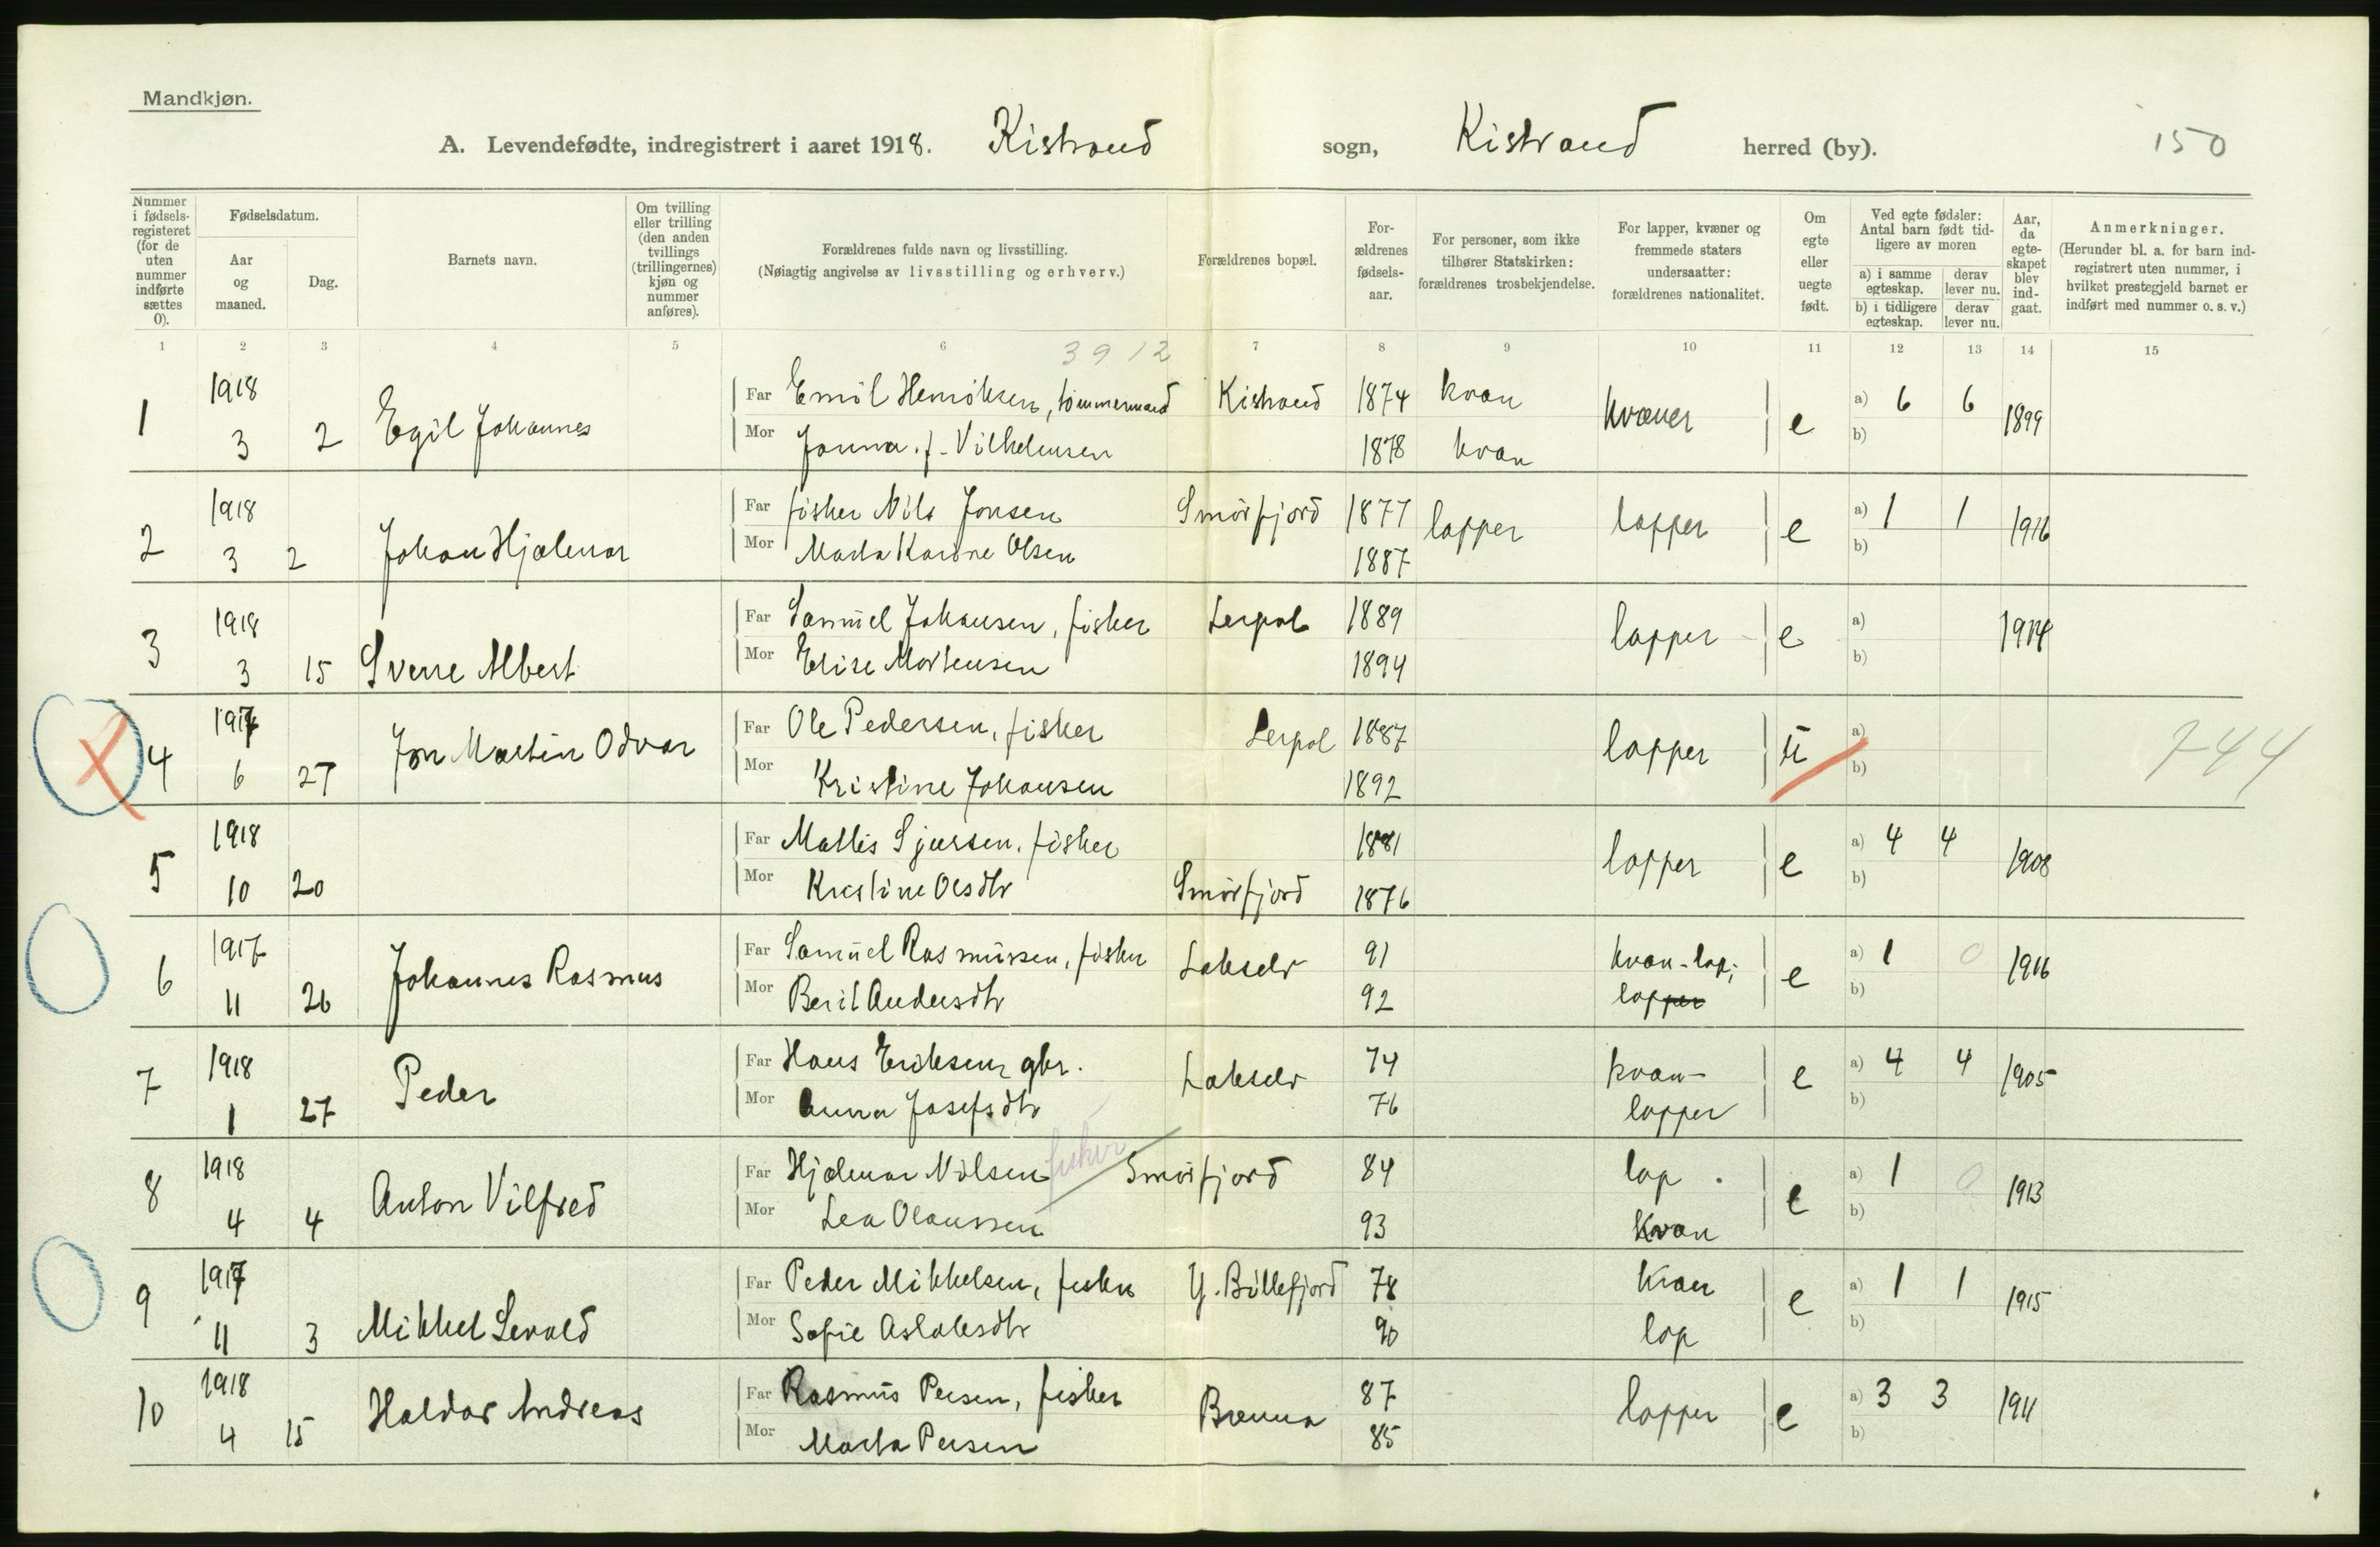 Mandkjøn.
A. Levendefødte, indregistrert i aaret 1918. Kistrand sogn, Kistrand herred (by). 150
Nummer i fødsels- registeret (for de uten nummer indførte sættes 0).
Fødselsdatum.
Aar og maaned.
Dag.
Barnets navn.
Om tvilling eller trilling (den anden tvillings (trillingernes) kjøn og nummer anføres).
Forældrenes fulde navn og livsstilling.
(Nøiagtig angivelse av livsstilling og erhverv.)
Forældrenes bopæl.
For- ældrenes fødsels- aar.
For personer, som ikke tilhører Statskirken: forældrenes trosbekjendelse.
For lapper, kvæner og fremmede staters undersaatter: forældrenes nationalitet.
Om egte eller uegte født.
Ved egte fødsler: Antal barn født tid- ligere av moren
a) i samme egteskap. derav lever nu.
b) i tidligere egteskap. derav lever nu.
Aar, da egte- skapet blev ind- gaat.
Anmerkninger.
(Herunder bl. a. for barn ind- registrert uten nummer, i hvilket prestegjeld barnet er indført med nummer o. s. v.)
1 2 3 4 5 6 7 8 9 10 11 12 13 14 15
3912
1 1918 Far Emil Henriksen, tømmermand Kistrand 1874 kvæn kvæner e a) 6 6 1899
3 2 Egil Johannes Mor Janna f. Vilhelmsen 1878 kvæn b)
2 1918 Far fisker Nils Jonsen Smørfjord 1877 lapper lapper e a) 1 1 1916
3 2 Johan Hjalmar Mor Marta Karine Olsen 1887 b)
3 1918 Far Samuel Johansen, fisker Lerpol 1889 lapper e a) 1914
3 15 Sverre Albert Mor Elise Mortensen 1894 b)
4 1917 Far Ole Pedersen, fisker Lerpol 1887 lapper u a) 744
6 27 Jon Martin Odvar Mor Kristine Johansen 1892 b)
5 1918 Far Mattis Sjursen, fisker 1881 lapper e a) 4 4 1908
10 20 Mor Kristine Olsdtr Smørfjord 1876 b)
6 1917 Far Samuel Rasmussen, fisker Lakselv 91 kvæn-lap; e a) 1 0 1916
11 26 Johannes Rasmus Mor Berit Andersdtr 92 lapper b)
7 1918 Far Hans Eriksen gbr. Lakselv 74 kvæn- e a) 4 4 1905
1 27 Peder Mor Anna Josefsdtr 76 lapper b)
8 1918 Far Hjalmar Nilsen fisker Smørfjord 84 lap e a) 1 0 1913
4 4 Anton Vilfred Mor Lea Olaussen 93 Kvæn b)
9 1917 Far Peder Mikkelsen, fisker Y. Billefjord 78 Kvæn e a) 1 1 1915
11 3 Mikkel Levald Mor Sofie Aslaksdtr 90 lap b)
10 1918 Far Rasmus Persen, fisker Brenna 87 lapper e a) 3 3 1911
4 15 Haldor Andreas Mor Marta Persen 85 b)